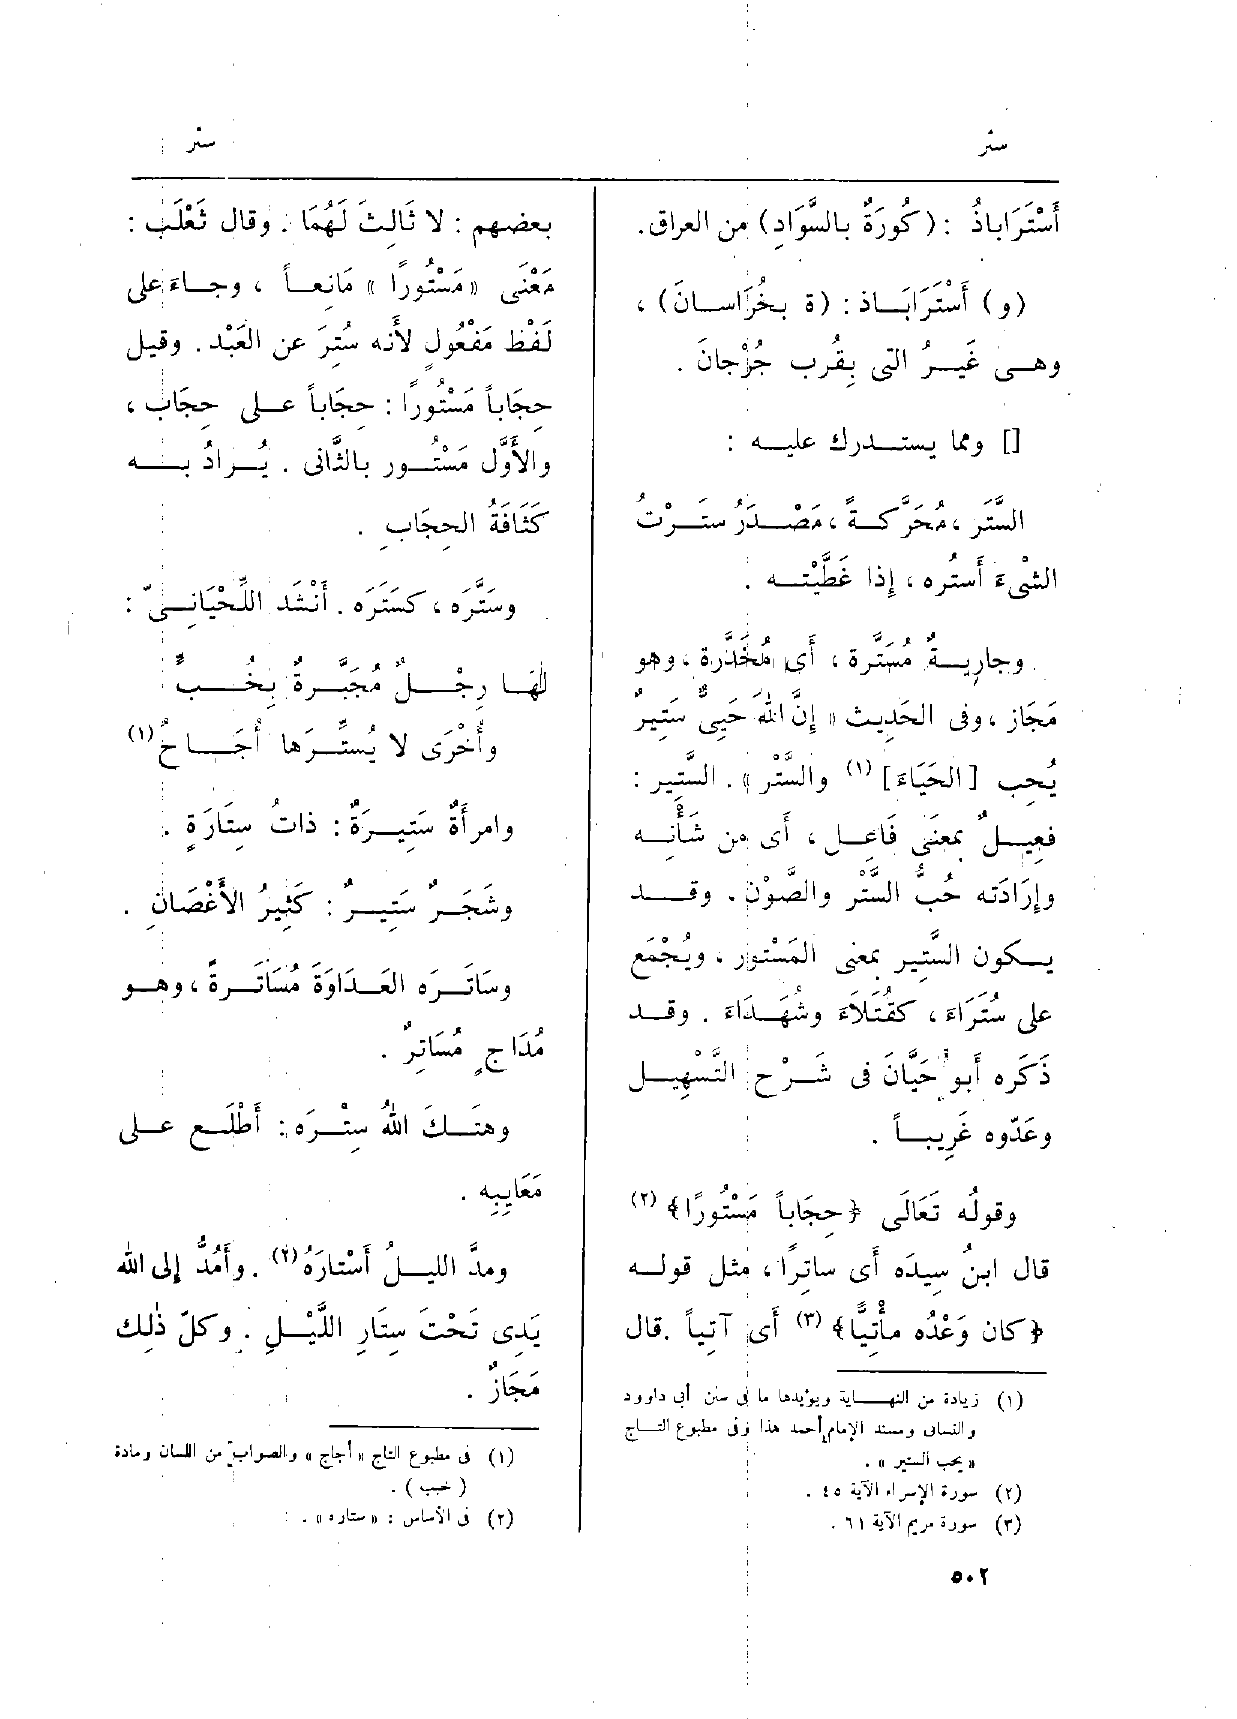 ستر
ستر
أَسْتَرَاباذُ : (كُورَةٌ بالسَّوَادِ) من العراق.
(و) أَسْتَرَابَاذ : (ة بخُرَاسانَ) ،
وهى غَيرُ التى بِقُرب جُرْجانَ .
[] ومما يستدرك عليه :
السَّتَر ، مُحَرَّكةً ، مَصْدَرُ سَتَرْتُ
الشىْءَ أَستُره ، إِذا غَطَّيْته .
وجاريةٌ مُسَتَّرة ، أَى مُخَدَّرة ، وهو
مَجَاز ، وفى الحَدِيث « إِنَّ اللهَ حَيِىٌّ سَتِيرٌ
يُحِب [الحَيَاءَ] (١) والسَّتْر » . السَّتِير :
فَعِيلٌ بمعنَى فَاعِل ، أَى من شَأْنِه
وإِرَادَته حُبُّ السَّتْر والصَّوْن . وقد
يكون السَّتِير بمعنى المَسْتُور ، ويُجْمَع
على سُتَرَاءَ ، كقُتَلَاءَ وشُهَدَاءَ . وقد
ذَكَره أَبو حَيَّانَ فى شَرْح التَّسْهِيل
وعَدّوه غَرِيباً .
وقولُه تَعَالَى ﴿حِجَاباً مَسْتُورًا﴾ (٢)
قال ابنُ سِيدَه أَى ساتِرًا ، مثل قوله
﴿كان وَعْدُه مأْتِيًّا﴾ (٣) أَى آتياً . قال
(١) زيادة من النهاية ويؤيدها ما فى سنن أبى داوود
والنسائى ومسند الإمام أحمد هذا وفى مطبوع التاج
« يحب الستير » .
(٢) سورة الإسراء الآية ٤٥ .
(٣) سورة مريم الآية ٦١ .
بعضهم : لا ثالِثَ لَهُمَا . وقال ثَعْلَب :
مَعْنَى « مَسْتُورًا » مَانِعاً ، وجاءَ على
لَفْظ مَفْعُولٍ لأَنه سُتِرَ عن العَبْد . وقيل
حِجَاباً مَسْتُورًا : حِجَاباً على حِجَاب ،
والأَوَّل مَسْتُور بالثَّانى . يُرادُ به
كَثَافَةُ الحِجَابِ .
وسَتَّرَه ، كسَتَرَه . أَنْشَد اللِّحْيَانىّ :
لَهَا رِجْلٌ مُجَبَّرةٌ بِخُبٍّ
وأُخْرَى لا يُسَتِّرُها أُجَاحُ (١)
وامرأَةٌ سَتِيرَةٌ : ذاتُ سِتَارَةٍ .
وشَجَرٌ سَتِيرٌ : كَثِيرُ الأَغْصَان .
وسَاتَرَه العَدَاوَةَ مُسَاتَرةً ، وهو
مُدَاجٍ مُسَاتِرٌ .
وهتَكَ اللهُ سِتْرَه : أَطْلَع على
مَعَايِبِه .
ومدَّ الليلُ أَسْتارَهُ (٢) . وأَمُدُّ إِلى الله
يَدِى تَحْتَ سِتَارِ اللَّيْلِ . وكلّ ذٰلك
مَجَازٌ .
(١) فى مطبوع التاج « أجاج » والصواب من اللسان ومادة
( خبب ) .
(٢) فى الأساس : « ستاره » .
٥٠٢